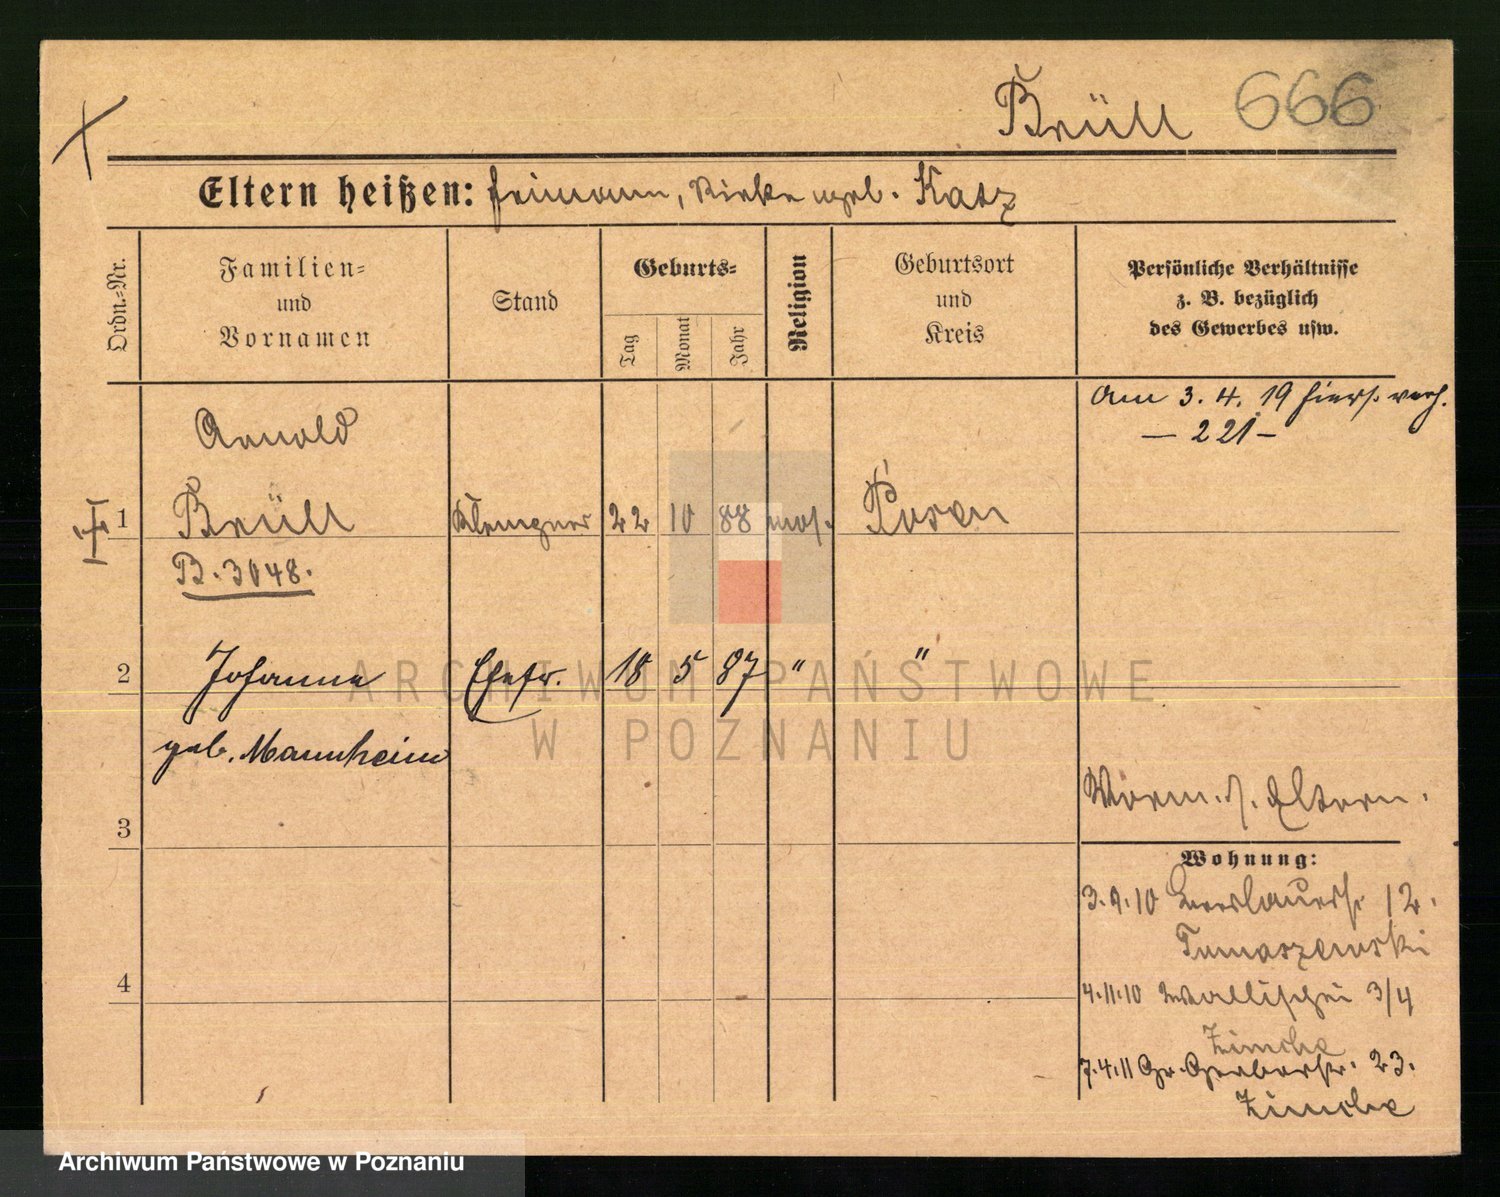 Brüll 666
Eltern heißen: Heimann, Rieke geb. Katz
Ordn.=Nr.
Familien=
und
Vornamen
Stand
Geburts=
Tag
Monat
Jahr
Religion
Geburtsort
und
Kreis
Persönliche Verhältnisse
z. B. bezüglich
des Gewerbes usw.
Am 3. 4. 19 hiers. verh.
— 221 —
Arnold
1 Brüll Klempner 22 10 88 mos. Posen
B. 3048.
2 Johanna Ehefr. 18 5 87 " "
geb. Mannheim
3
4
Worm. s. Eltern.
Wohnung:
3.9.10 Breslauerstr 12.
Tomaszewski
4.11.10 Wallischei 3/4
Zimche
7.4.11 Gr. Gerberstr. 23.
Zimche
ARCHIWUM PAŃSTWOWE
W POZNANIU
Archiwum Państwowe w Poznaniu